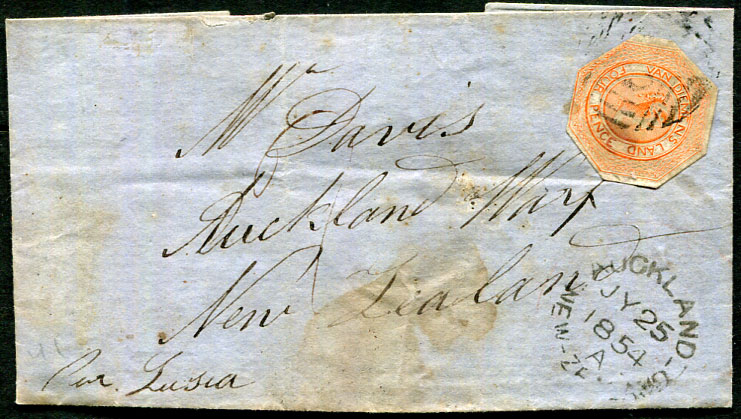 VAN DIEMENS LAND FOUR PENCE
Mr Davis
Auckland Warf
New Zealand
AUCKLAND
JY 25
1854
A
NEW-ZEALAND
Per Lusia
41